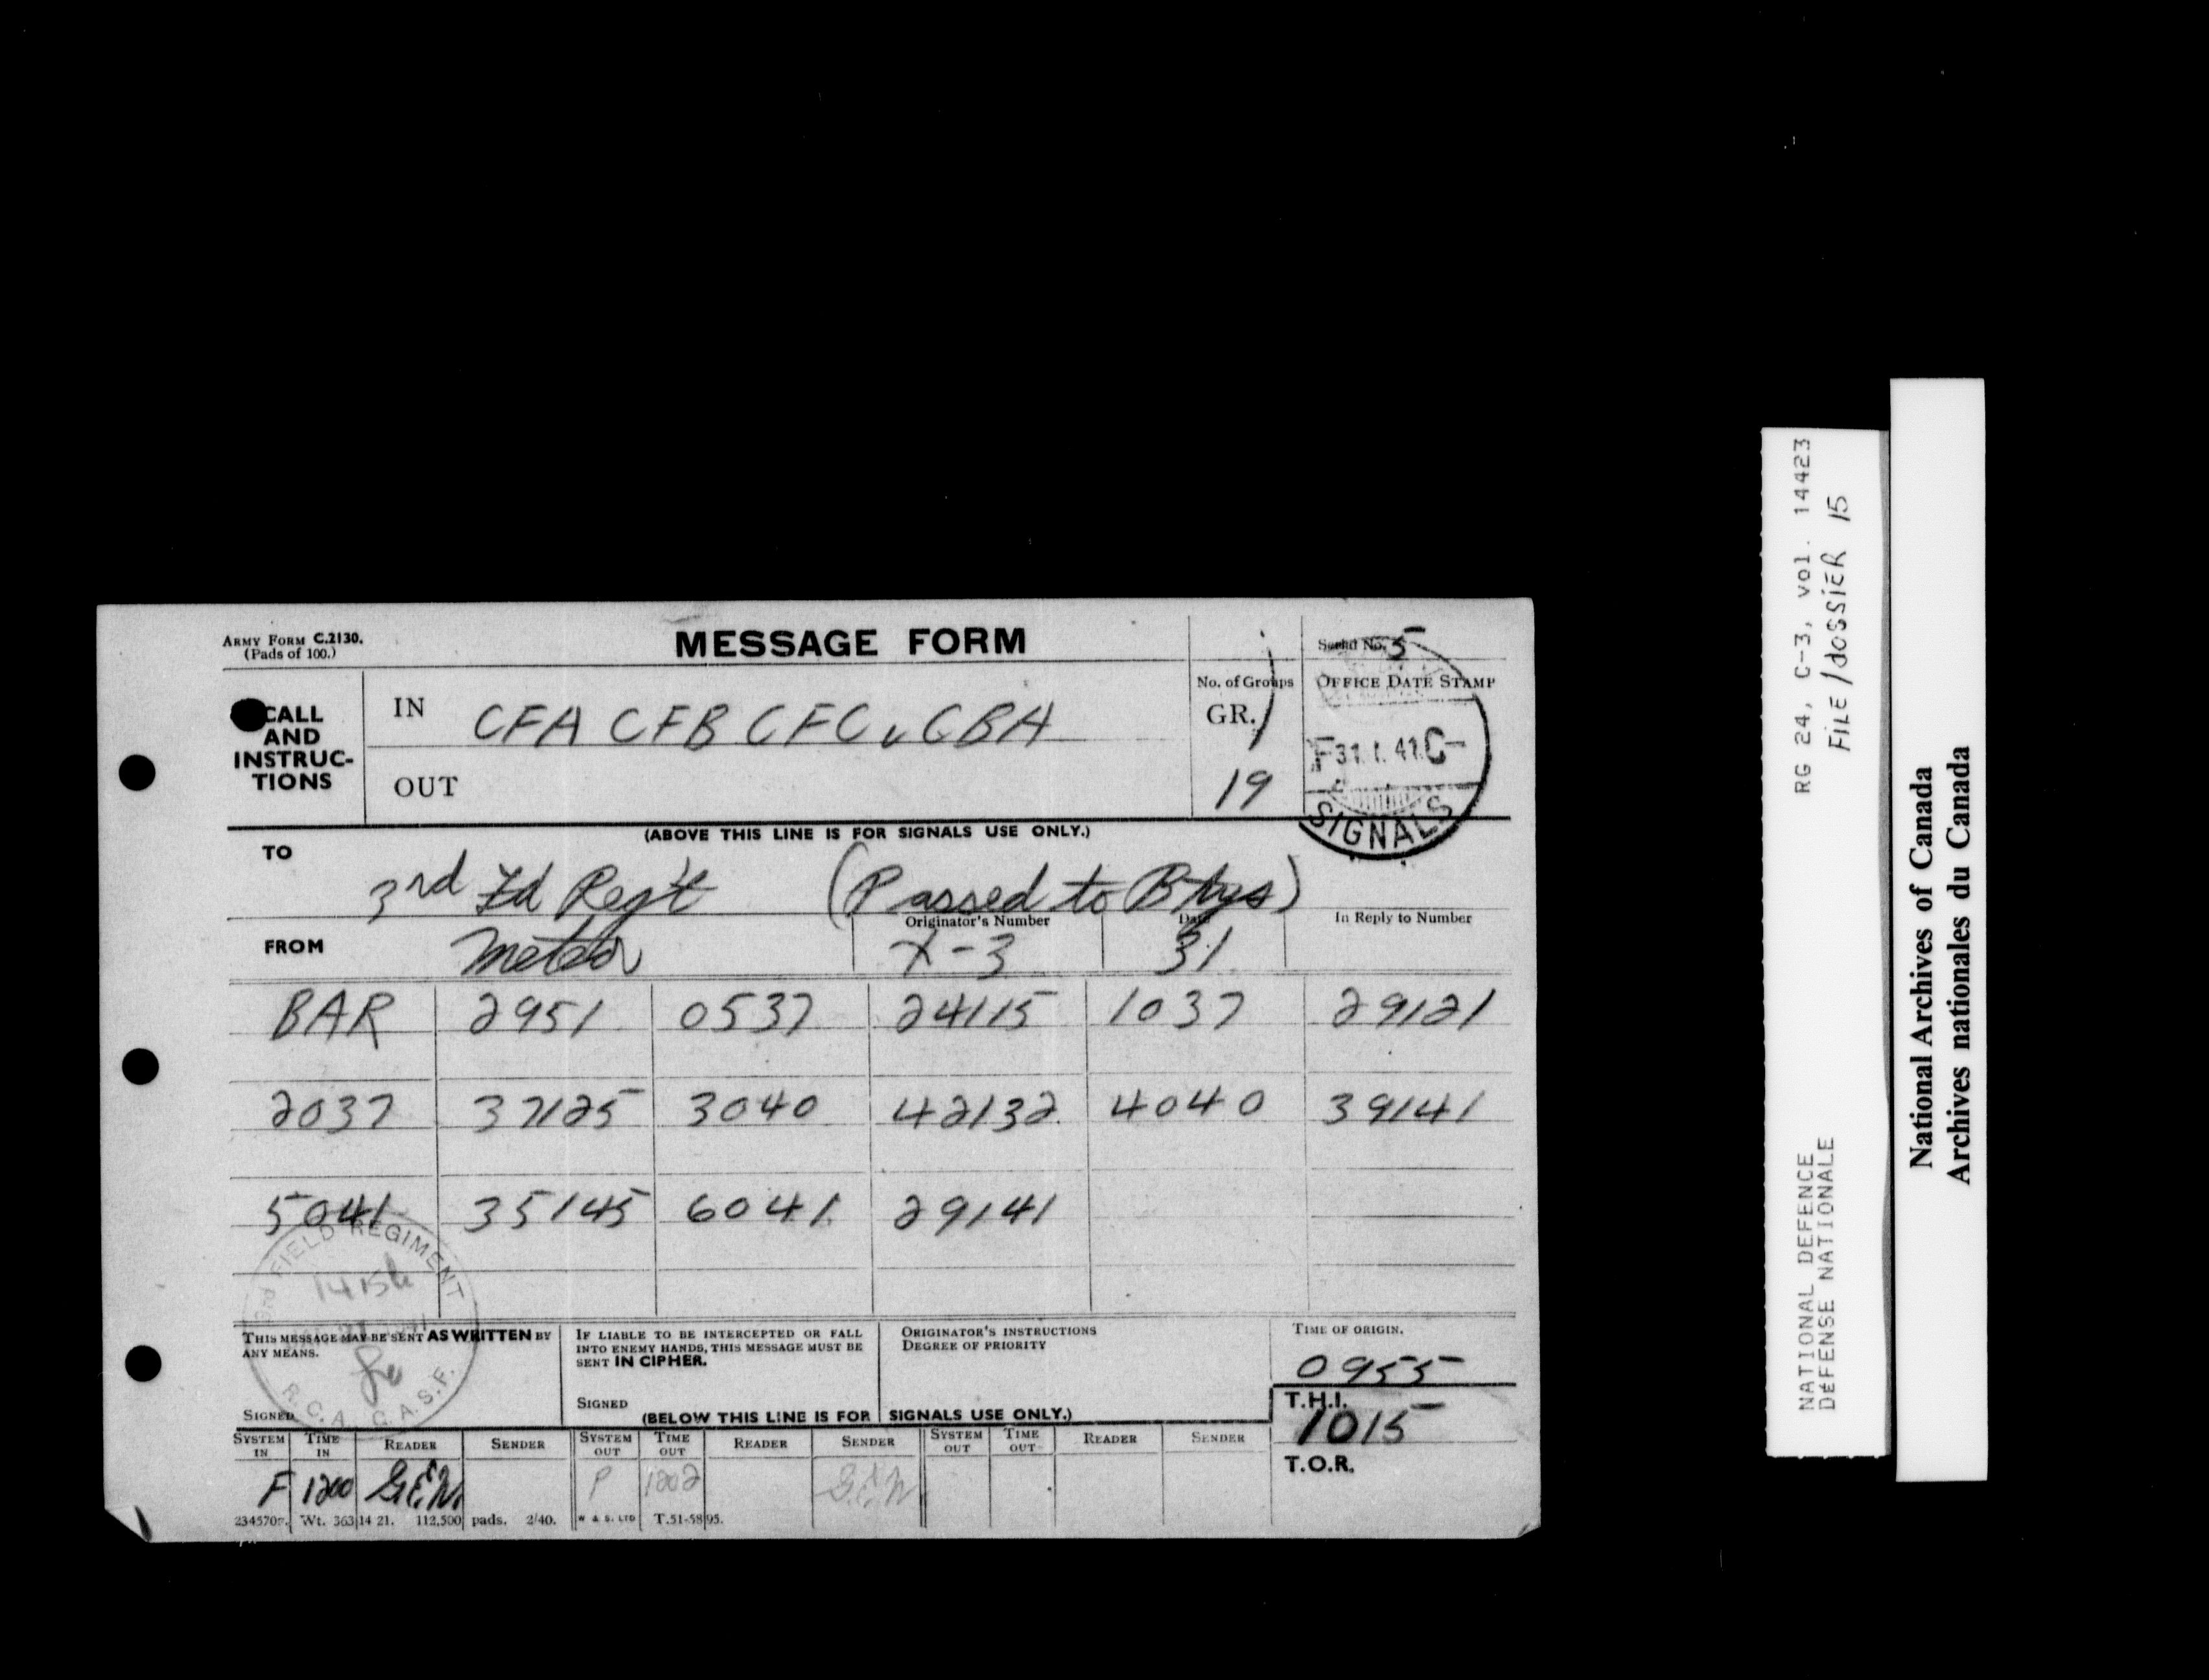 ARMY FORM C.2130.
(Pads of 100.)
MESSAGE FORM
Serial No. 5
CALL AND INSTRUC-TIONS
IN CFA CFB CFC v CBA
OUT
No. of Groups
GR.
19
OFFICE DATE STAMP
31.1.41 C-
SIGNALS
(ABOVE THIS LINE IS FOR SIGNALS USE ONLY.)
TO
3rd Fd Reg't (Passed to Btys)
FROM Meteor
Originator's Number X-3
Date 31
In Reply to Number
BAR 2951 0537 24115 1037 29121
2037 37125 3040 42132 4040 39141
5041 35145 6041 29141
3rd FIELD REGIMENT
R.C.A. C.A.S.F.
THIS MESSAGE MAY BE SENT AS WRITTEN BY ANY MEANS.
SIGNED
IF LIABLE TO BE INTERCEPTED OR FALL INTO ENEMY HANDS, THIS MESSAGE MUST BE SENT IN CIPHER.
SIGNED
ORIGINATOR'S INSTRUCTIONS
DEGREE OF PRIORITY
TIME OF ORIGIN.
0955
T.H.I.
1015
T.O.R.
(BELOW THIS LINE IS FOR SIGNALS USE ONLY.)
SYSTEM IN TIME IN READER SENDER SYSTEM OUT TIME OUT READER SENDER SYSTEM OUT TIME OUT READER SENDER
F 1200 G.E.W. P 1202 G.E.W.
Wt. 363 14 21. 112,500 pads. 2/40. W & S. LTD T.51-5895.
RG 24, C-3, vol. 14423
FILE/dOSSIER 15
NATIONAL DEFENCE
DÉFENSE NATIONALE
National Archives of Canada
Archives nationales du Canada